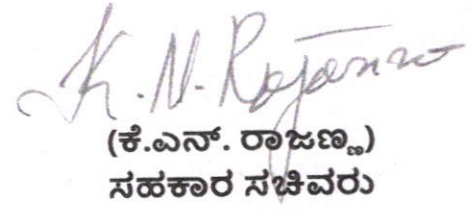 K. N. Rajanna
(ಕೆ.ಎನ್. ರಾಜಣ್ಣ)
ಸಹಕಾರ ಸಚಿವರು